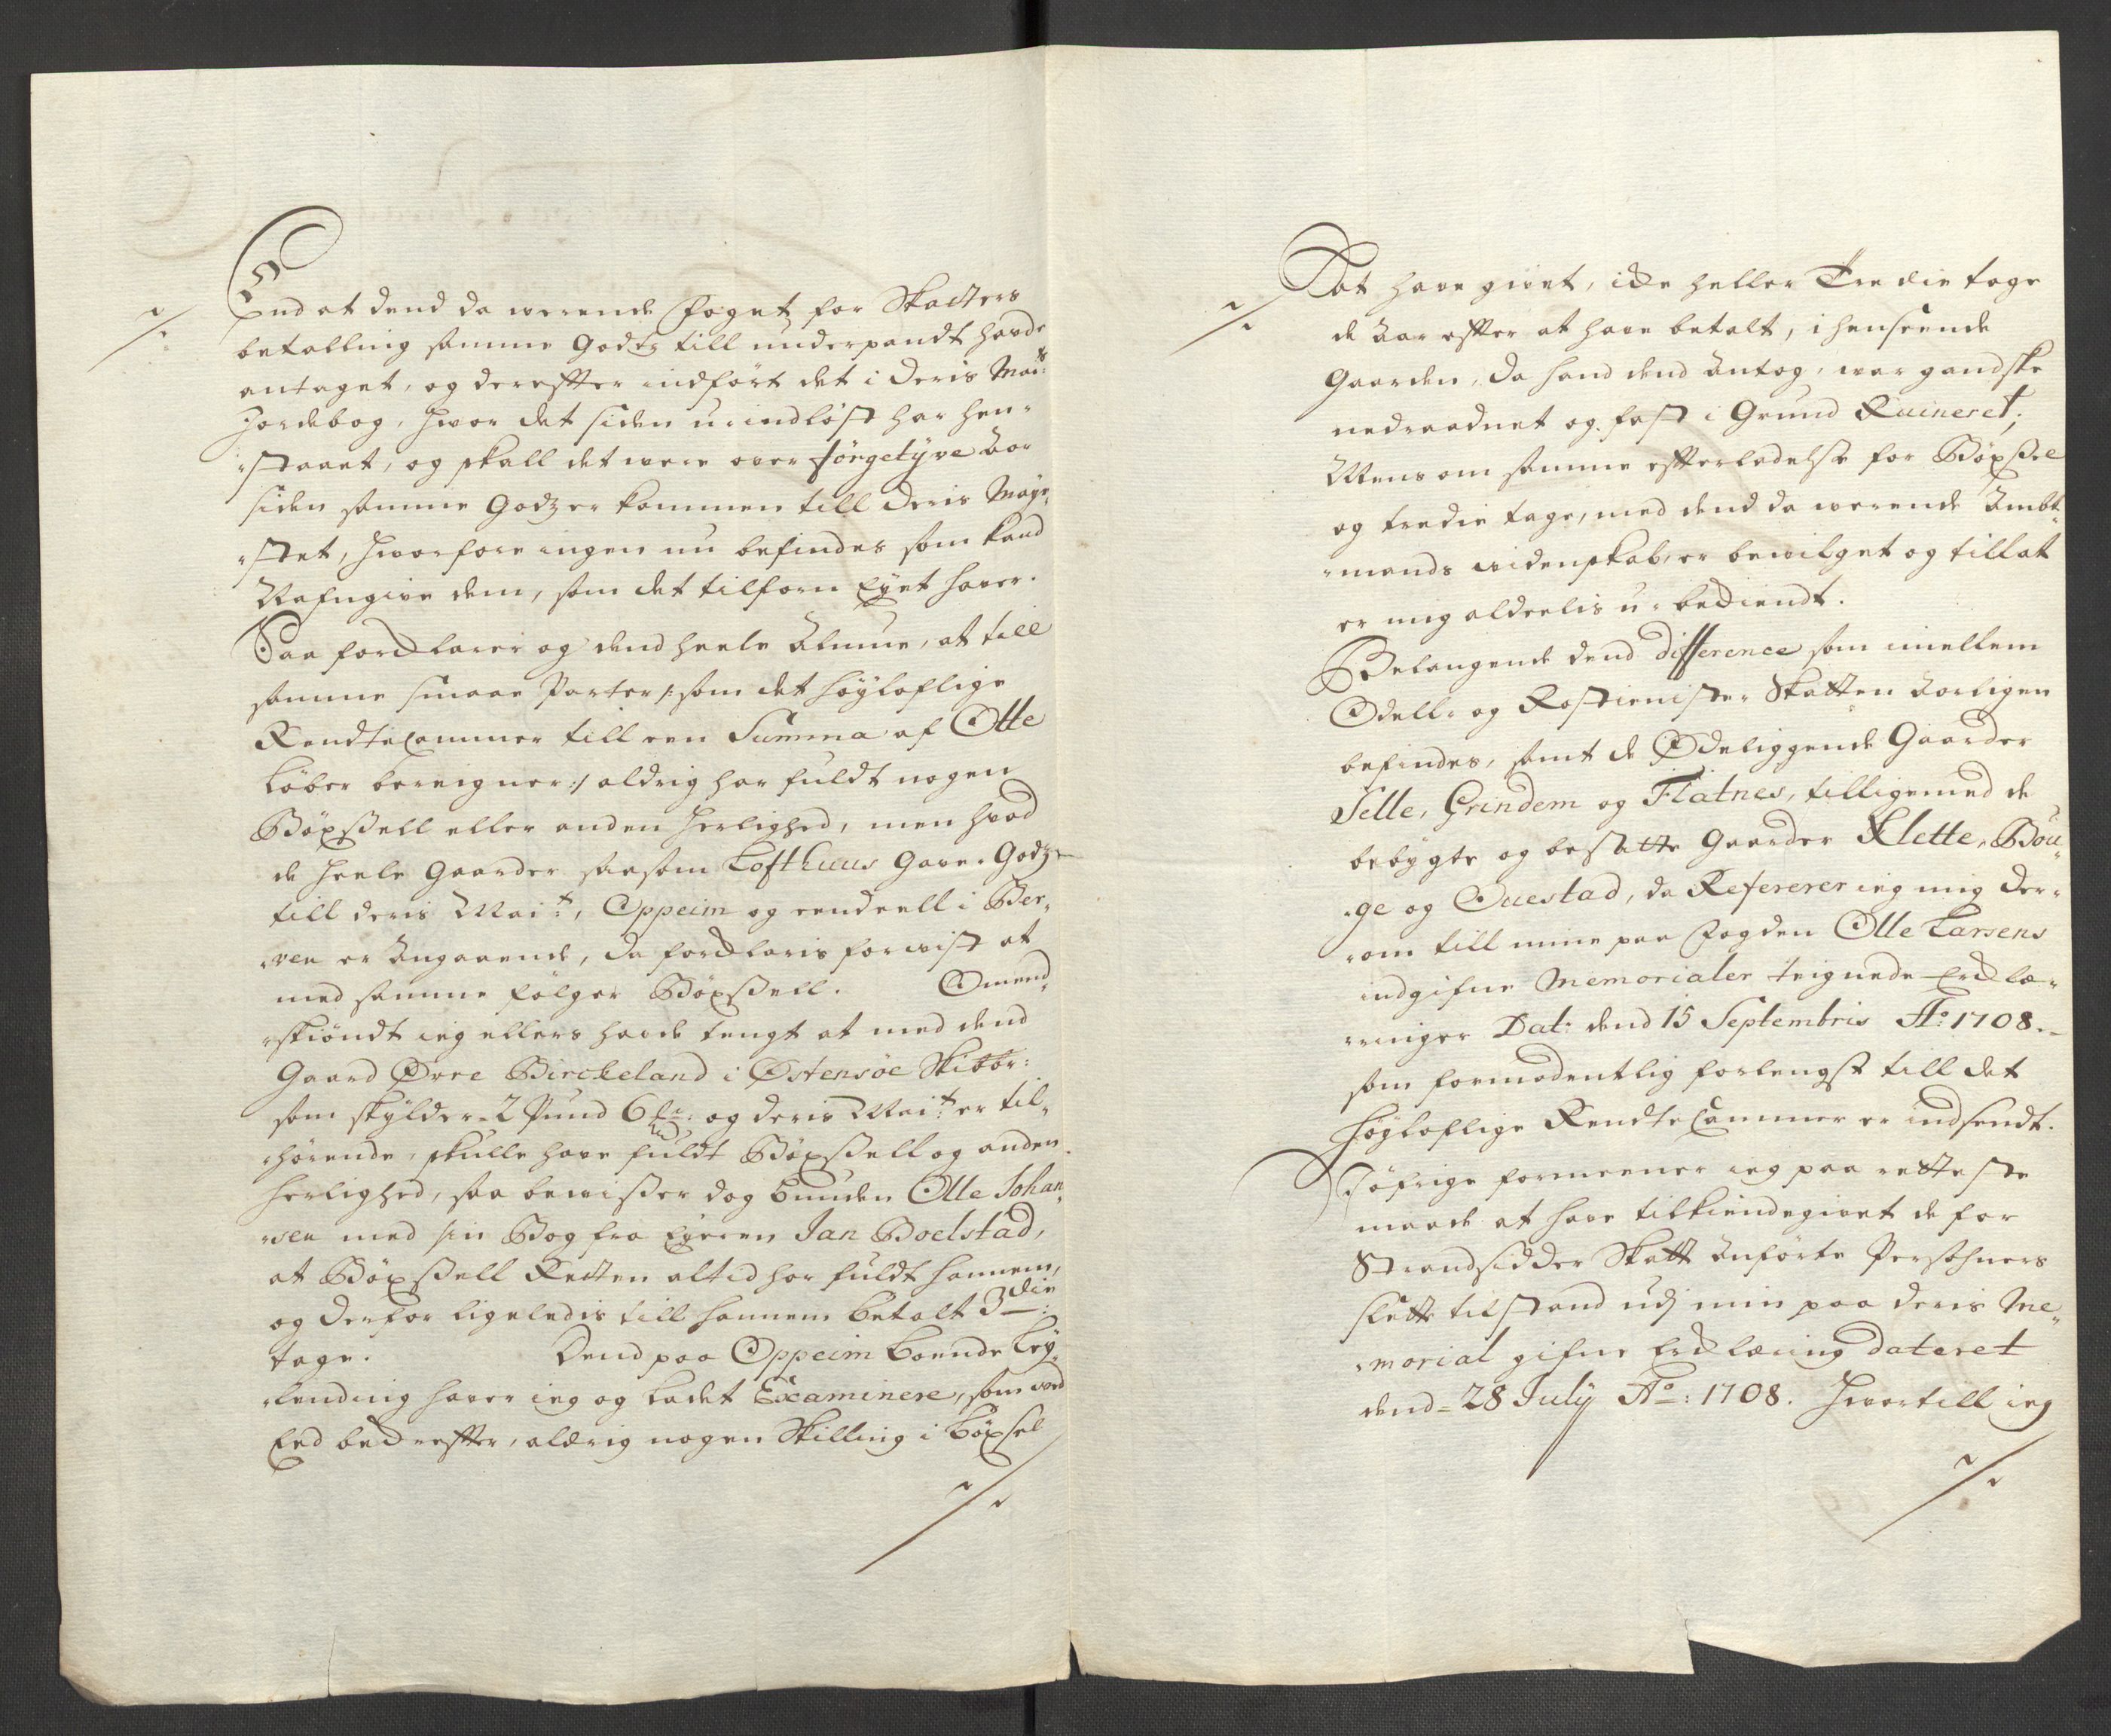 End at dend da werende foget, for Skatters
betalling samme Godtz till underpandt hafde
antaget, og dereffter indført det i deris Maÿts
Jordebog, hvor det siden u-indløst har hen-
staaet, og skall det were over förgetÿve Aar
siden samme Godz er kommen till deris Maÿe-
stet, hvorfore ingen nu befindes som kand
Nafngive dem, som det tilforn Eÿet hafver.
Saa forclarer og dend heele Almue, at till
samme smaae Parter /: som det høÿloflige
Rendtecammer till een Summa af Otte
Løber bereigner :/ aldrig har fuldt nogen
Böxsell eller anden herlighed, men hvad
de heele Gaarder saasom Lofthuus Gave-Godz
till deris Maÿt, Oppeim og eendeell i Ber-
ven er Angaaende, da forclaris forvist at
med samme følger Böxsell. Omend-
skiøndt ieg ellers hafde tengt at med dend
Gaard Øvre Birckeland i Østensøe Skibbr:
som skÿlder 2 Pund 6 og deris Maÿt er til-
hørende, skulle have fuldt Böxsell og anden
herlighed, saa bevisser dog bunden Olle Johan-
sen med sin Bog fra Eÿeren Jan Boelstad,
at Böxsell Retten altid har fuldt hannem,
og derfor ligeledis till hannem betalt 3die
tage. Dend paa Oppeim boende Leÿ-
lending haver ieg og ladet Examinere, som ved
Eed bed reffter, aldrig nogen Skilling i böxsel
At have givet, icke heller Tredie tage
de Aar effter at have betalt, i henseende
Gaarden, da hand dend Antog, war gandske
nedraadnet og fast i Grund Ruineret;
Mens om samme effterladelse for Böxsel
og tredie tage, med dend da werende Ambt-
mands widenskab, er bevilget og tillat
er mig aldeelis u-bekiendt.
Belangende dend difference som imellem
Odells og Rostieniste Skatten Aarligen
befindes, samt de Ødeliggende Gaarder
Selle, Grindem og Flatnes, tilligemed de
bebÿgte og besatte Gaarder Klette, Bou-
ge og Ouestad, da Refererer ieg mig der-
om till mine paa Fogden Olle Larsens
indgifne Memorialer teignede Erclæ-
ringer Dat: dend 15 Septembris Ao: 1708.
som formodentlig forlengst till det
Høÿloflige Rendte Cammer er indsendt.
I øfrige formeener ieg paa retteste
maade at have tilkiendegivet de for
Strandsidder Skatt Anførte Persohners
slette tilstand udj min paa deris Me-
morial gifne Erclæring dateret
dend 28 Julÿ Ao: 1708. Hvortill ieg